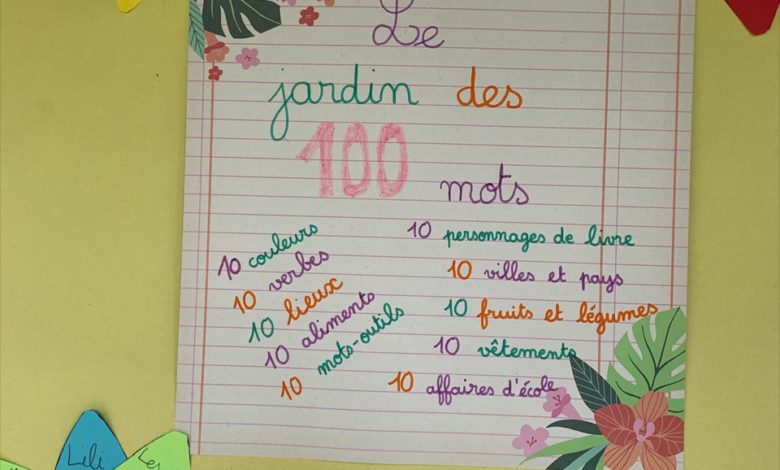 Le
jardin des
100
mots
10 couleurs
10 verbes
10 lieux
10 aliments
10 mots-outils
10 personnages de livre
10 villes et pays
10 fruits et légumes
10 vêtements
10 affaires d'école
Lili